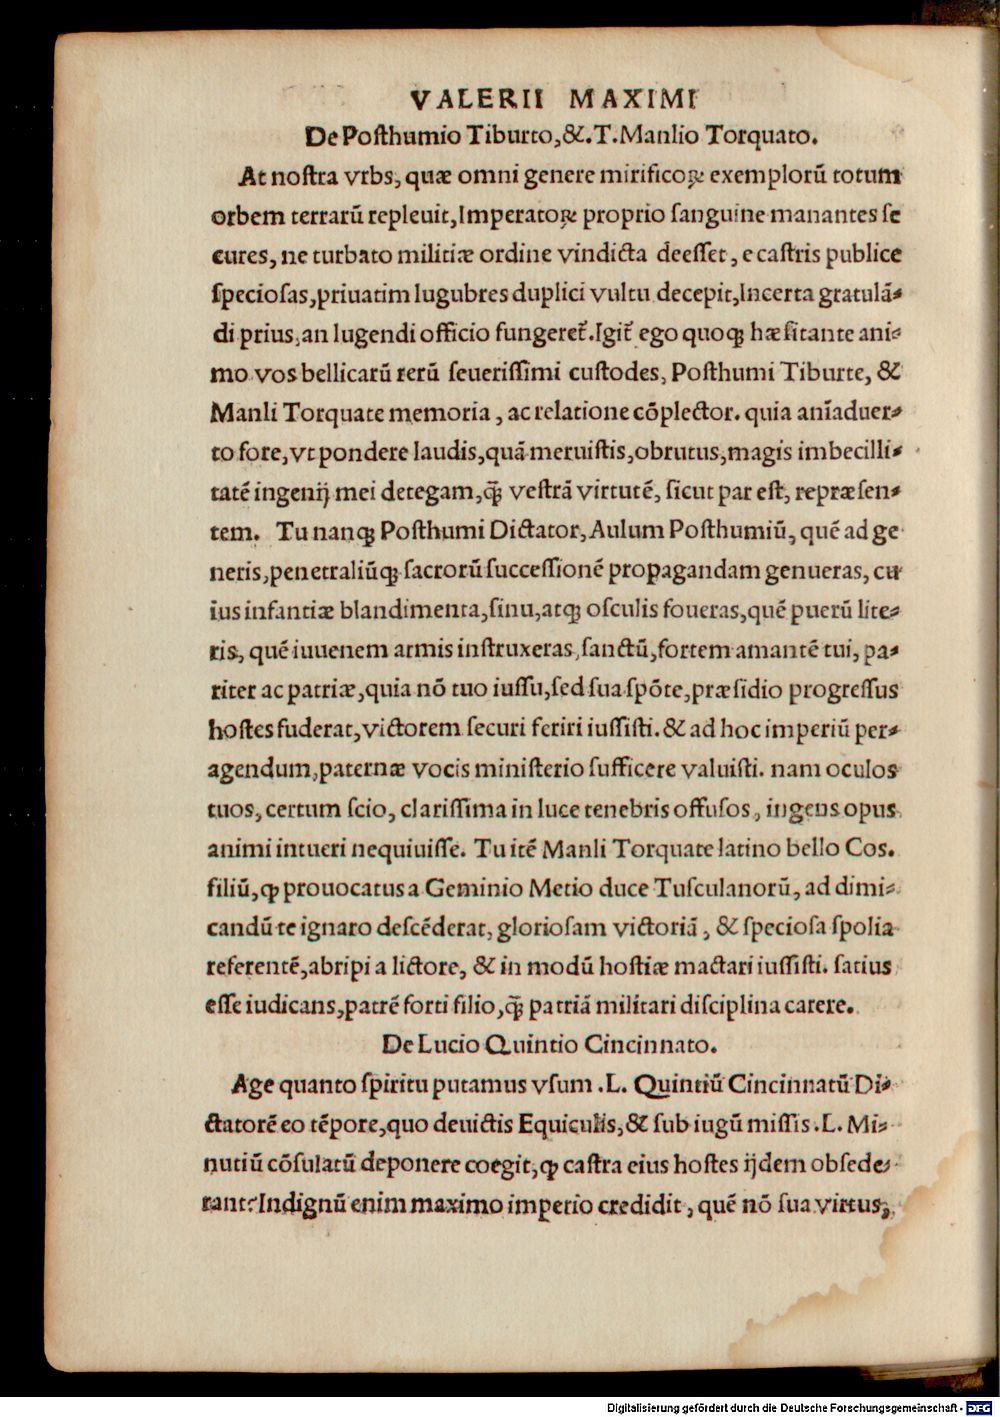 VALERII MAXIMI
De Posthumio Tiburto,&.T.Manlio Torquato.
At nostra vrbs, quæ omni genere mirificoꝝ exemplorū totum
orbem terrarū repleuit,Imperatoꝝ proprio sanguine manantes se
cures, ne turbato militiæ ordine vindicta deesset, e castris publice
speciosas,priuatim lugubres duplici vultu decepit,Incerta gratulā⸗
di prius,an lugendi officio fungeret̃.Igit̃ ego quoqꝫ hæsitante ani⸗
mo vos bellicarū rerū seuerissimi custodes, Posthumi Tiburte, &
Manli Torquate memoria, ac relatione cōplector. quia anīaduer⸗
to fore,vt pondere laudis,quā meruistis,obrutus,magis imbecilli⸗
tatē ingenij mei detegam,q̃ꝫ vestrā virtutē, sicut par est, repræsen⸗
tem. Tu nanqꝫ Posthumi Dictator, Aulum Posthumiū, quē ad ge
neris,penetraliūqꝫ sacrorū successionē propagandam genueras, cu
ius infantiæ blandimenta,sinu,atqꝫ osculis foueras,quē puerū lite⸗
ris, quē iuuenem armis instruxeras,sanctū,fortem amantē tui, pa⸗
riter ac patriæ,quia nō tuo iussu,sed sua spōte,præsidio progressus
hostes fuderat,victorem securi feriri iussisti. & ad hoc imperiū per⸗
agendum,paternæ vocis ministerio sufficere valuisti. nam oculos
tuos, certum scio, clarissima in luce tenebris offusos, ingens opus
animi intueri nequiuisse. Tu itē Manli Torquate latino bello Cos.
filiū,ꝙ prouocatus a Geminio Metio duce Tusculanorū, ad dimi⸗
candū te ignaro descēderat, gloriosam victoriā, & speciosa spolia
referentē,abripi a lictore, & in modū hostiæ mactari iussisti. satius
esse iudicans,patrē forti filio,q̃ꝫ patriā militari disciplina carere.
De Lucio Quintio Cincinnato.
Age quanto spiritu putamus vsum .L. Quintiū Cincinnatū Di⸗
ctatorē eo tēpore,quo deuictis Equiculis,& sub iugū missis .L. Mi⸗
nutiū cōsulatū deponere coegit,ꝙ castra eius hostes ijdem obsede⸗
rant?Indignū enim maximo imperio credidit, quē nō sua virtus,
Digitalisierung gefördert durch die Deutsche Forschungsgemeinschaft - DFG